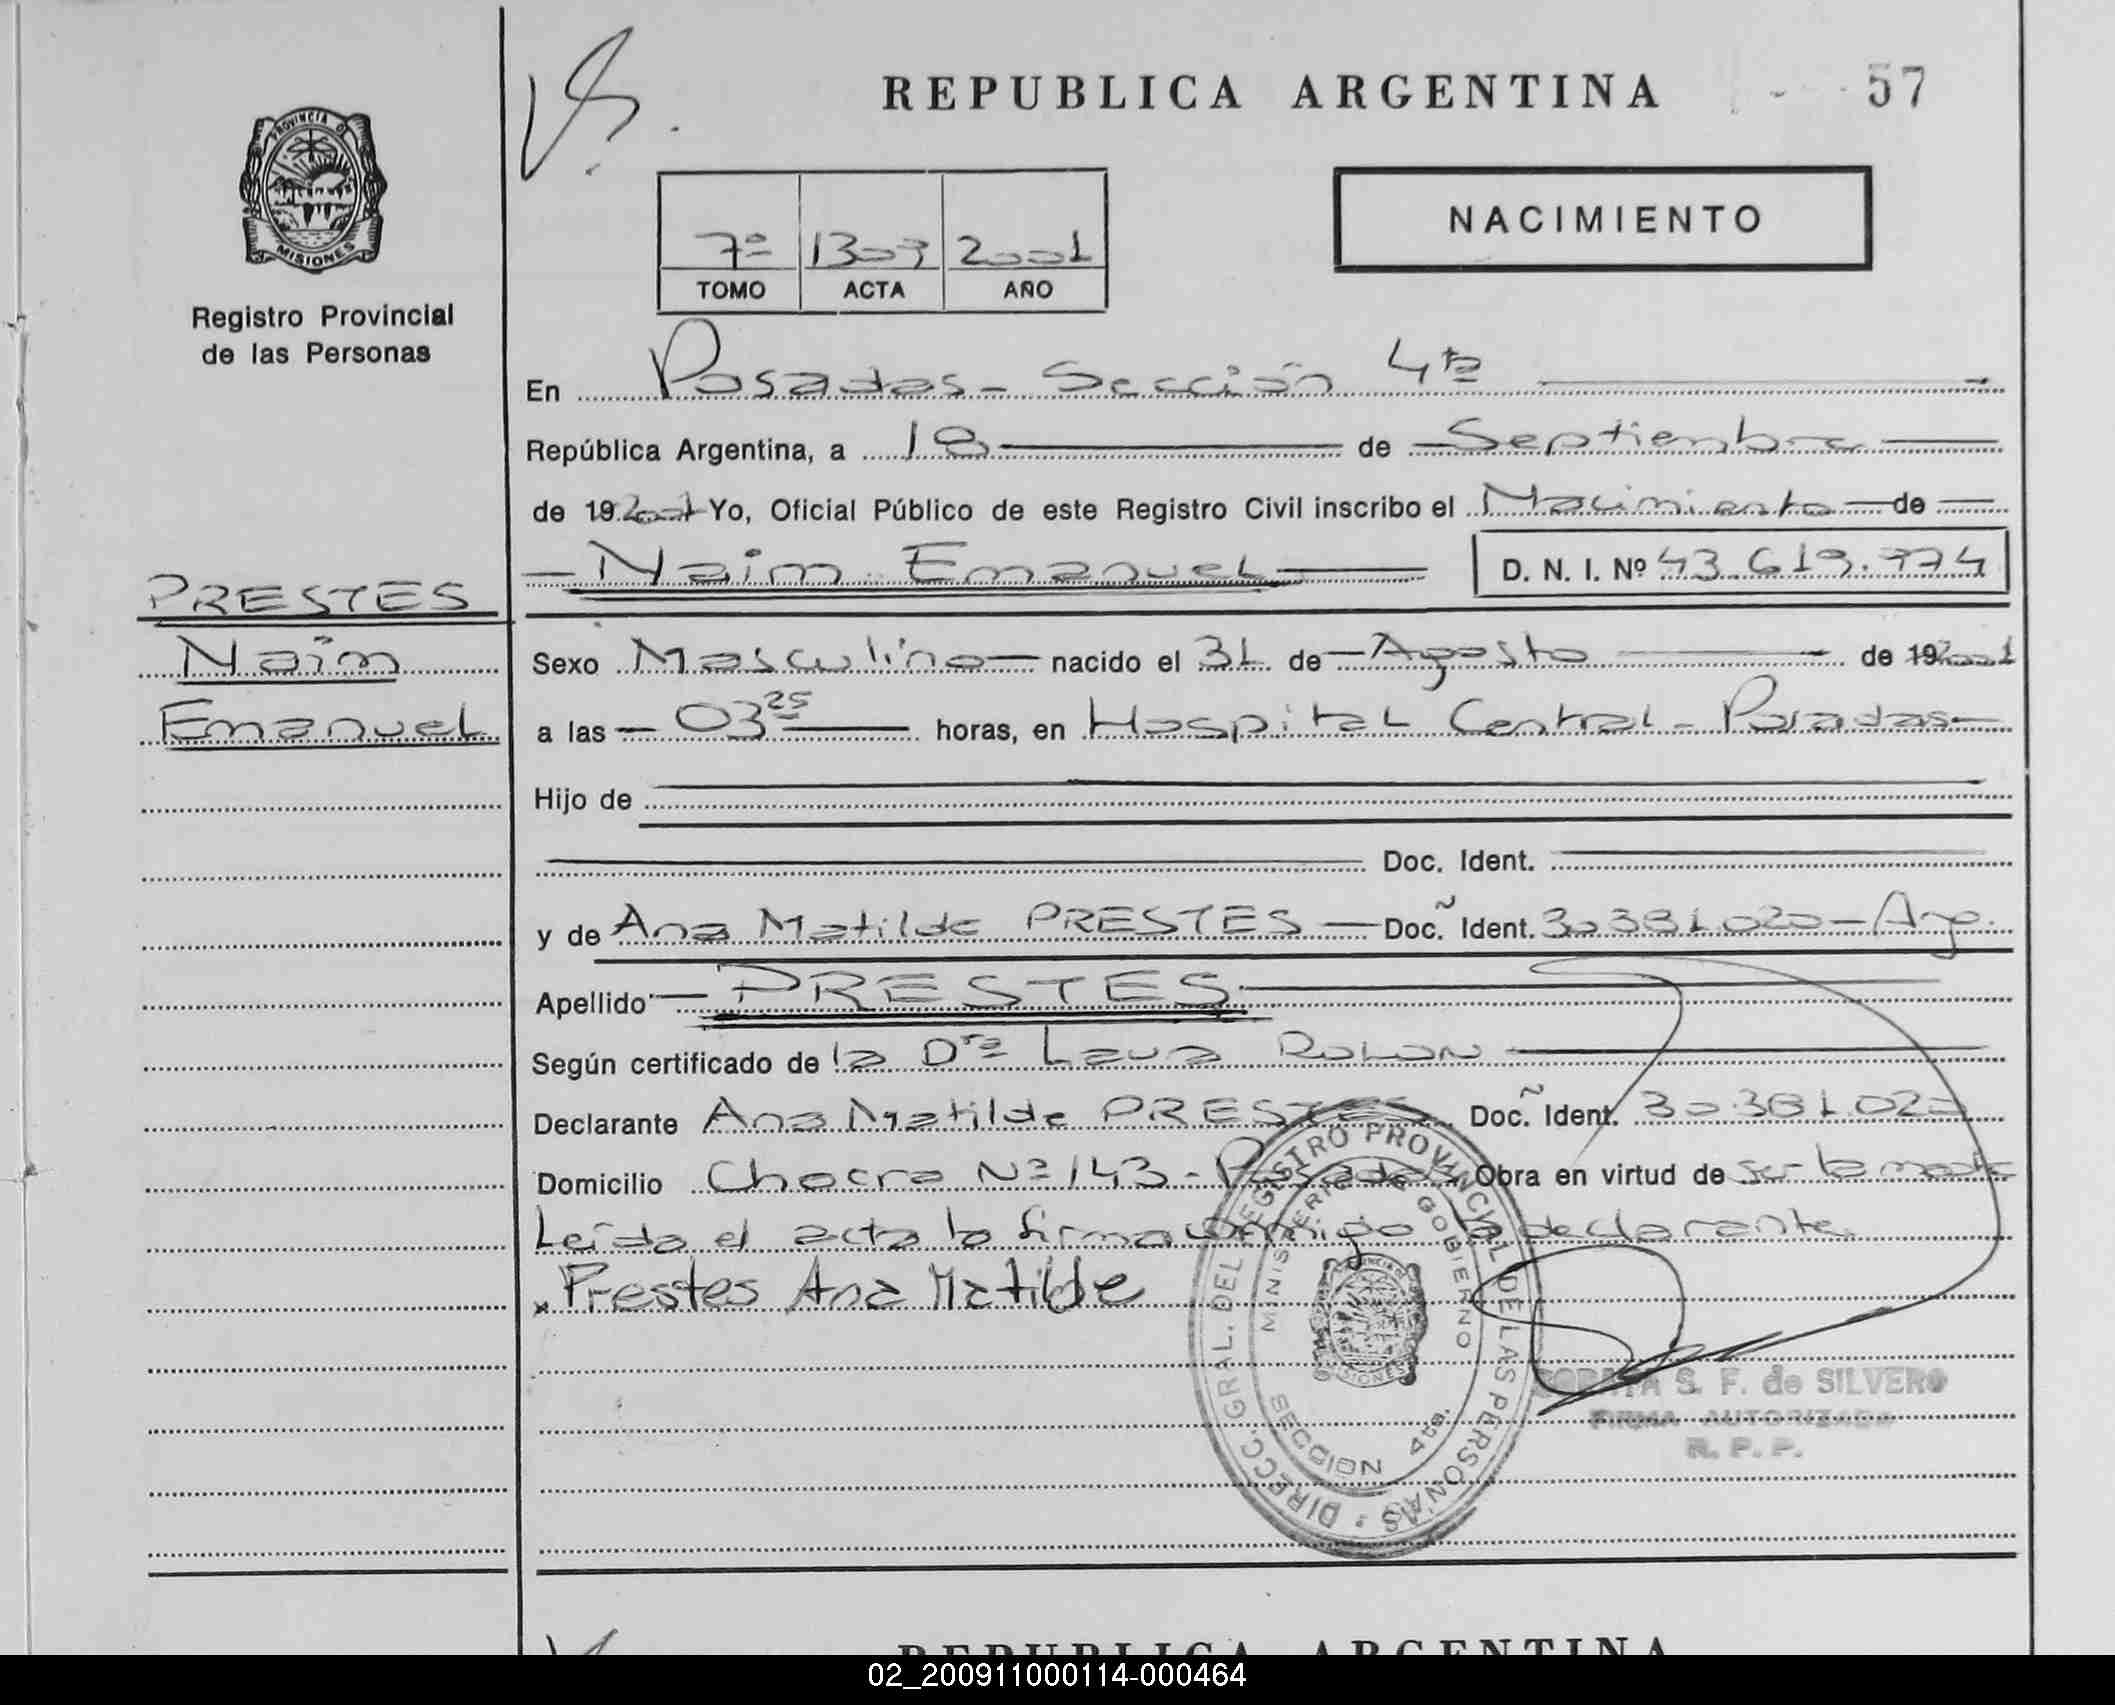 REPUBLICA ARGENTINA
57
PROVINCIA DE
MISIONES
Registro Provincial
de las Personas
7º 1303 2001
TOMO ACTA AÑO
NACIMIENTO
En Posadas - Sección 4ta
República Argentina, a 18 de Septiembre
de 19 2001 Yo, Oficial Público de este Registro Civil inscribo el Nacimiento de
Naim Emanuel D. N. I. Nº 43.619.774
PRESTES
Naim
Emanuel
Sexo Masculino nacido el 31 de Agosto de 19 2001
a las 03 25 horas, en Hospital Central - Posadas
Hijo de
Doc. Ident.
y de Ana Matilde PRESTES Doc. Ident. 30381020 - Arg.
Apellido PRESTES
Según certificado de la Dra Laura ROLON
Declarante Ana Matilde PRESTES Doc. Ident. 30381020
Domicilio Chacra Nº 143 - Posadas Obra en virtud de ser la madre
Leída el acta la firma conmigo la declarante.
x Prestes Ana Matilde
DIRECC. GRAL. DEL REGISTRO PROVINCIAL DE LAS PERSONAS
MINISTERIO DE GOBIERNO
MISIONES
SECCION 4ta.
S. F. de SILVERO
FIRMA AUTORIZADA
R. P. P.
REPUBLICA ARGENTINA
02_200911000114-000464